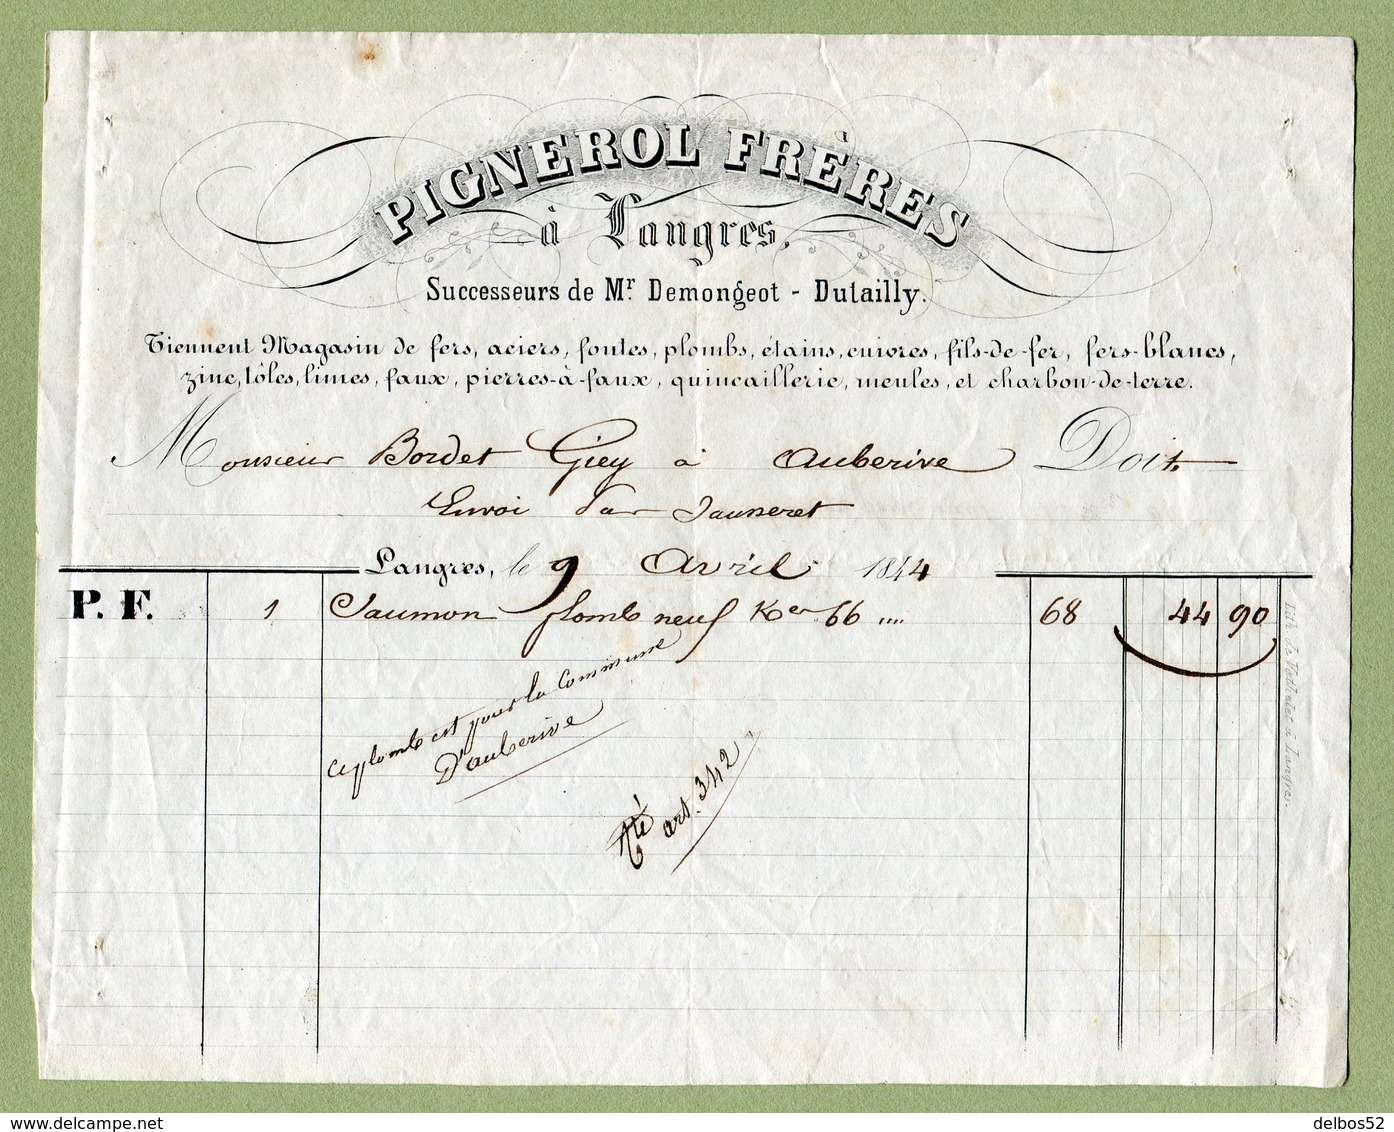 PIGNEROL FRÈRES
à Langres,
Successeurs de Mr. Demongeot - Dutailly.
Tiennent Magasin de fers, aciers, fontes, plombs, étains, cuivres, fils-de-fer, fers-blancs,
zinc, tôles, limes, faux, pierres-à-faux, quincaillerie, meules, et charbon-de-terre.
Monsieur Bordet Giey à Auberive Doit
Envoi par Jausseret
Langres, le 9 Avril 1844
P. F. 1 Saumon plomb neuf Kos 66 .... 68 44 90
ce plomb est pour la Commune
D'auberive
art. 342
Lith. de Vethalet à Langres.
delcampe.net
delbos52